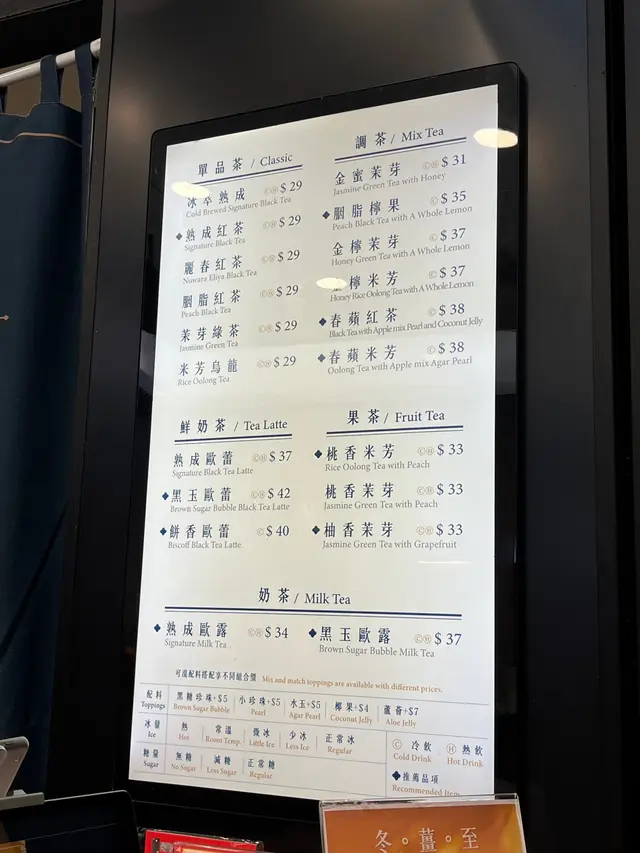 單品茶 / Classic
冰萃熟成 ⒸⒽ $ 29
Cold Brewed Signature Black Tea
◆熟成紅茶 ⒸⒽ $ 29
Signature Black Tea
麗春紅茶 ⒸⒽ $ 29
Nuwara Eliya Black Tea
胭脂紅茶 ⒸⒽ $ 29
Peach Black Tea
茉芽綠茶 ⒸⒽ $ 29
Jasmine Green Tea
米芳烏龍 ⒸⒽ $ 29
Rice Oolong Tea
調茶 / Mix Tea
金蜜茉芽 ⒸⒽ $ 31
Jasmine Green Tea with Honey
◆胭脂檸果 Ⓒ $ 35
Peach Black Tea with A Whole Lemon
金檸茉芽 Ⓒ $ 37
Honey Green Tea with A Whole Lemon
檸米芳 Ⓒ $ 37
Honey Rice Oolong Tea with A Whole Lemon
◆春蘋紅茶 Ⓒ $ 38
Black Tea with Apple mix Pearl and Coconut Jelly
◆春蘋米芳 Ⓒ $ 38
Oolong Tea with Apple mix Agar Pearl
鮮奶茶 / Tea Latte
熟成歐蕾 ⒸⒽ $ 37
Signature Black Tea Latte
◆黑玉歐蕾 ⒸⒽ $ 42
Brown Sugar Bubble Black Tea Latte
◆餅香歐蕾 Ⓒ $ 40
Biscoff Black Tea Latte
果茶 / Fruit Tea
◆桃香米芳 ⒸⒽ $ 33
Rice Oolong Tea with Peach
桃香茉芽 ⒸⒽ $ 33
Jasmine Green Tea with Peach
◆柚香茉芽 ⒸⒽ $ 33
Jasmine Green Tea with Grapefruit
奶茶 / Milk Tea
◆熟成歐露 ⒸⒽ $ 34
Signature Milk Tea
◆黑玉歐露 ⒸⒽ $ 37
Brown Sugar Bubble Milk Tea
可選配料搭配享不同組合價 Mix and match toppings are available with different prices.
配料 黑糖珍珠+$5 小珍珠+$5 水玉+$5 椰果+$4 蘆薈+$7
Toppings Brown Sugar Bubble Pearl Agar Pearl Coconut Jelly Aloe Jelly
冰量 熱 常溫 微冰 少冰 正常冰
Ice Hot Room Temp. Little Ice Less Ice Regular
糖量 無糖 減糖 正常糖
Sugar No Sugar Less Sugar Regular
Ⓒ 冷飲 Ⓗ 熱飲
Cold Drink Hot Drink
◆推薦品項
Recommended Item
冬。薑。至